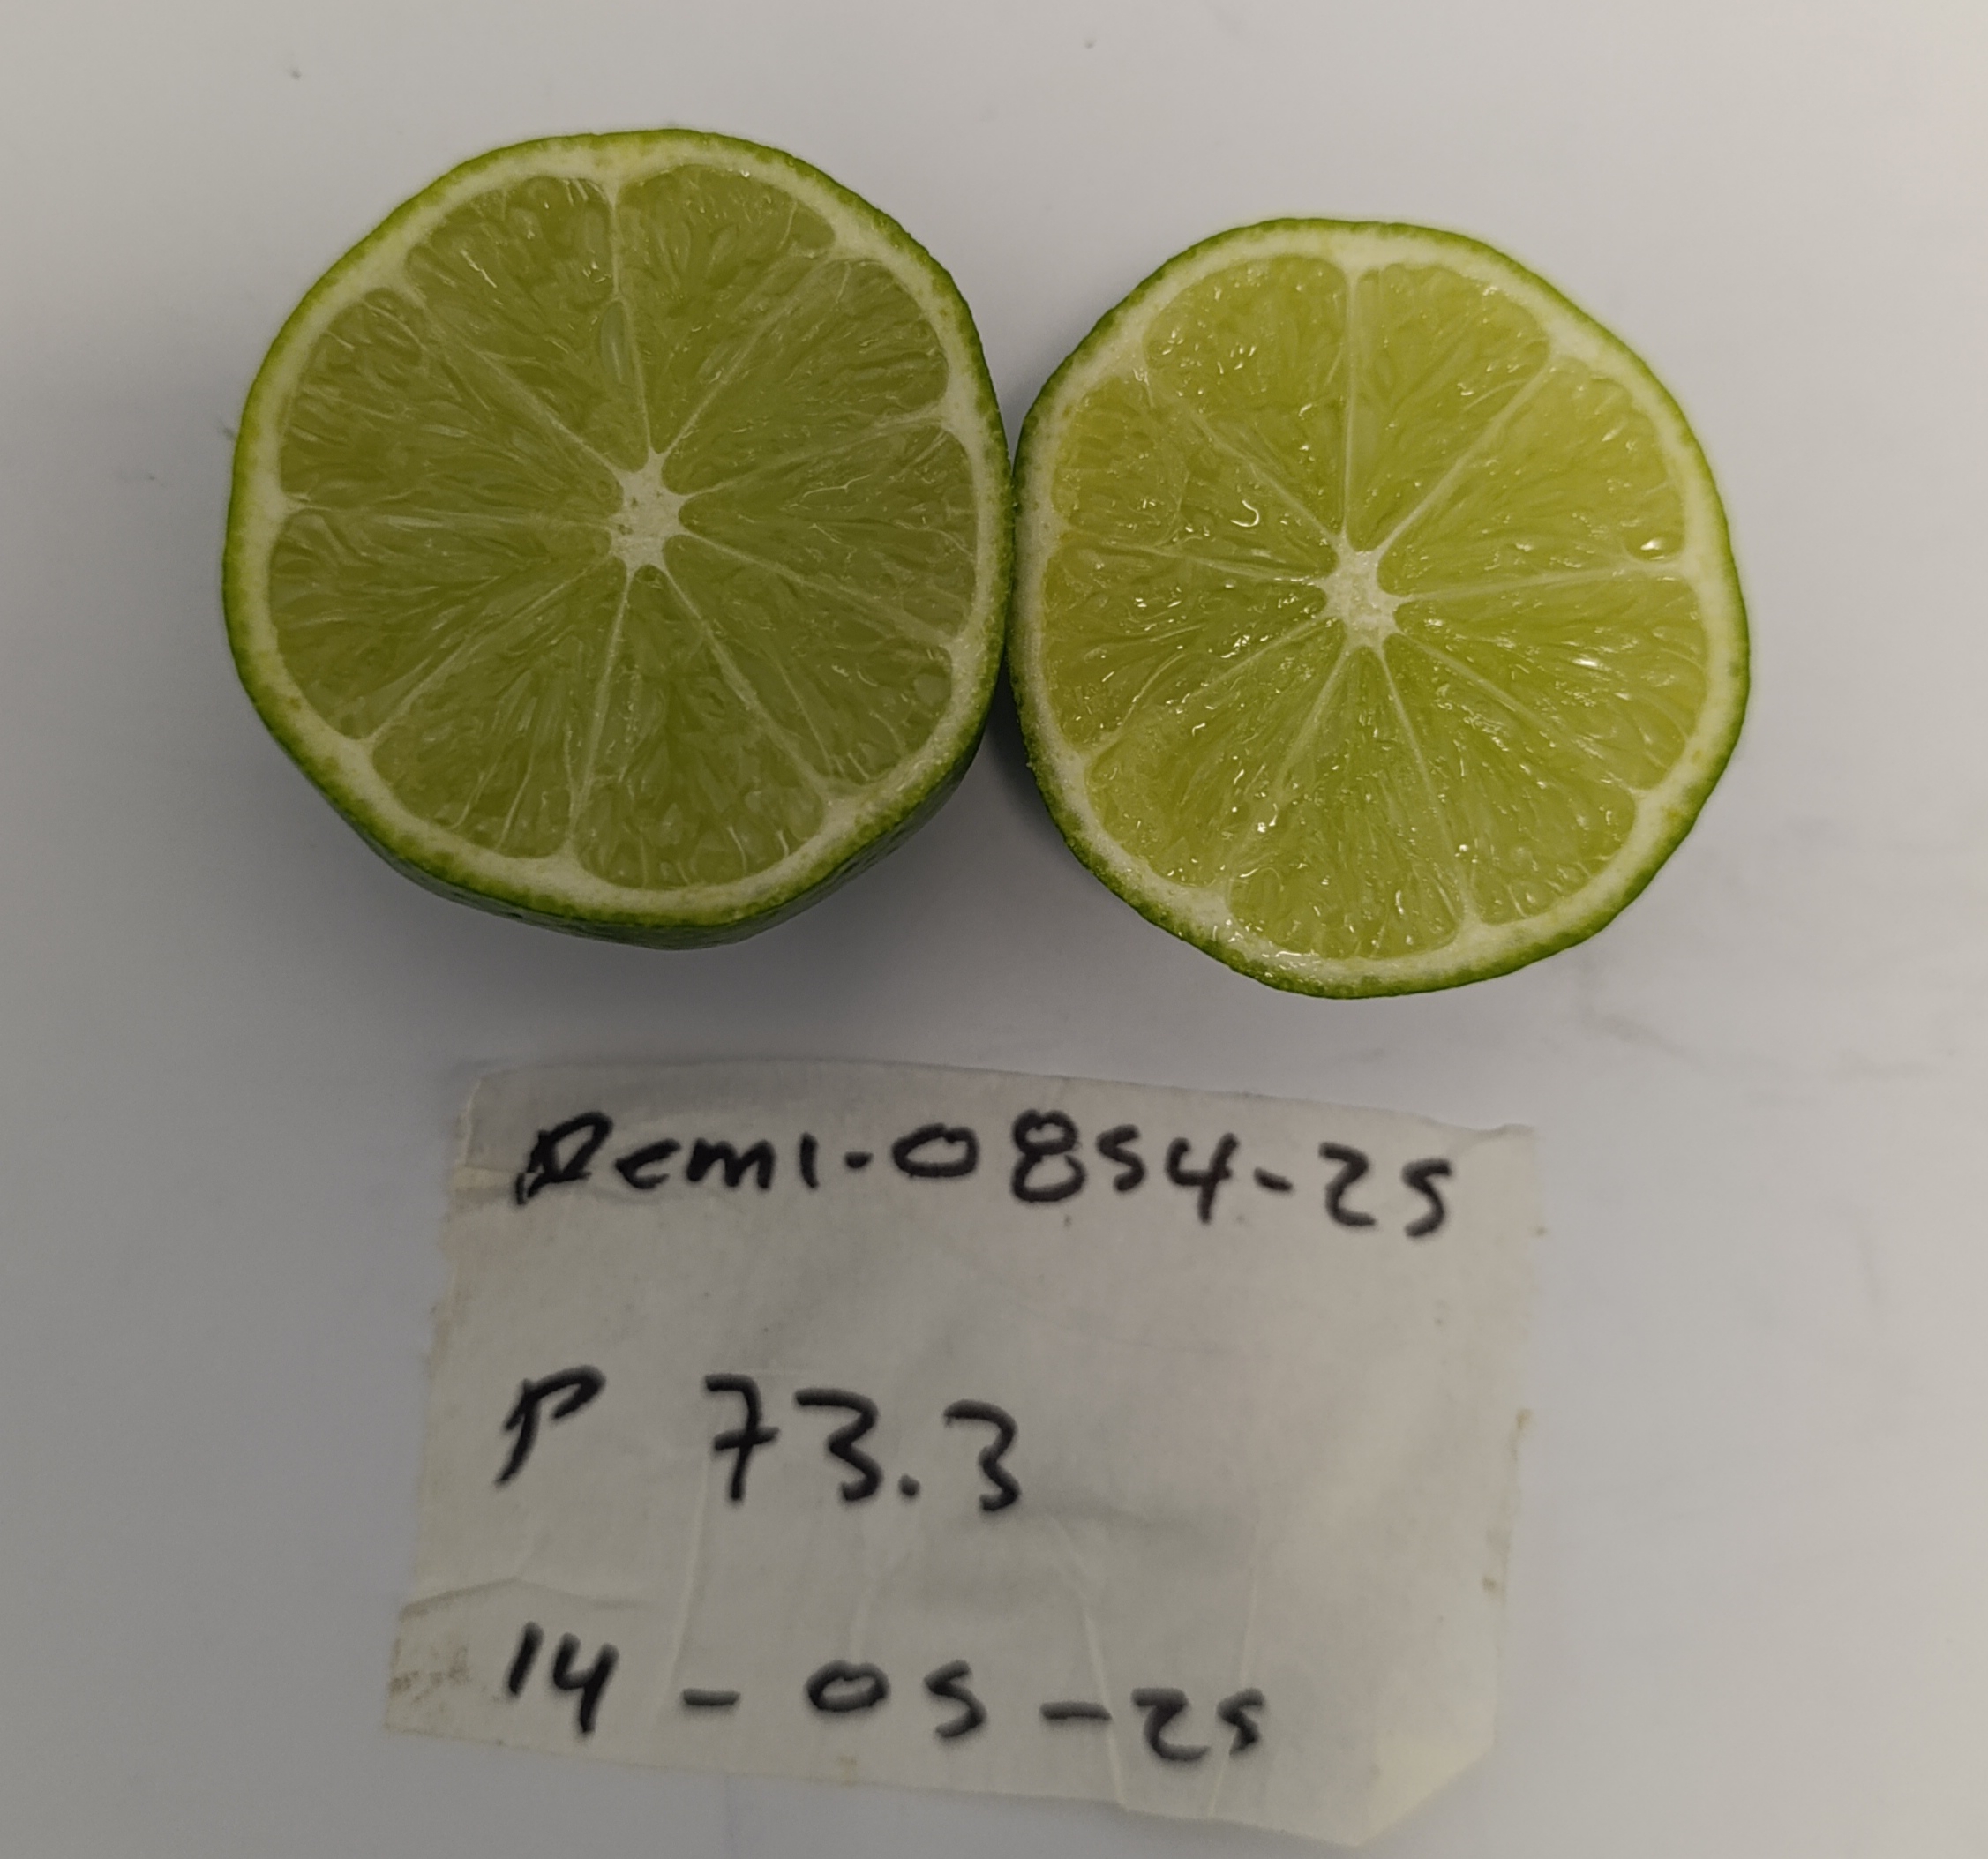 Remi-0854-25
P 73.3
14-05-25